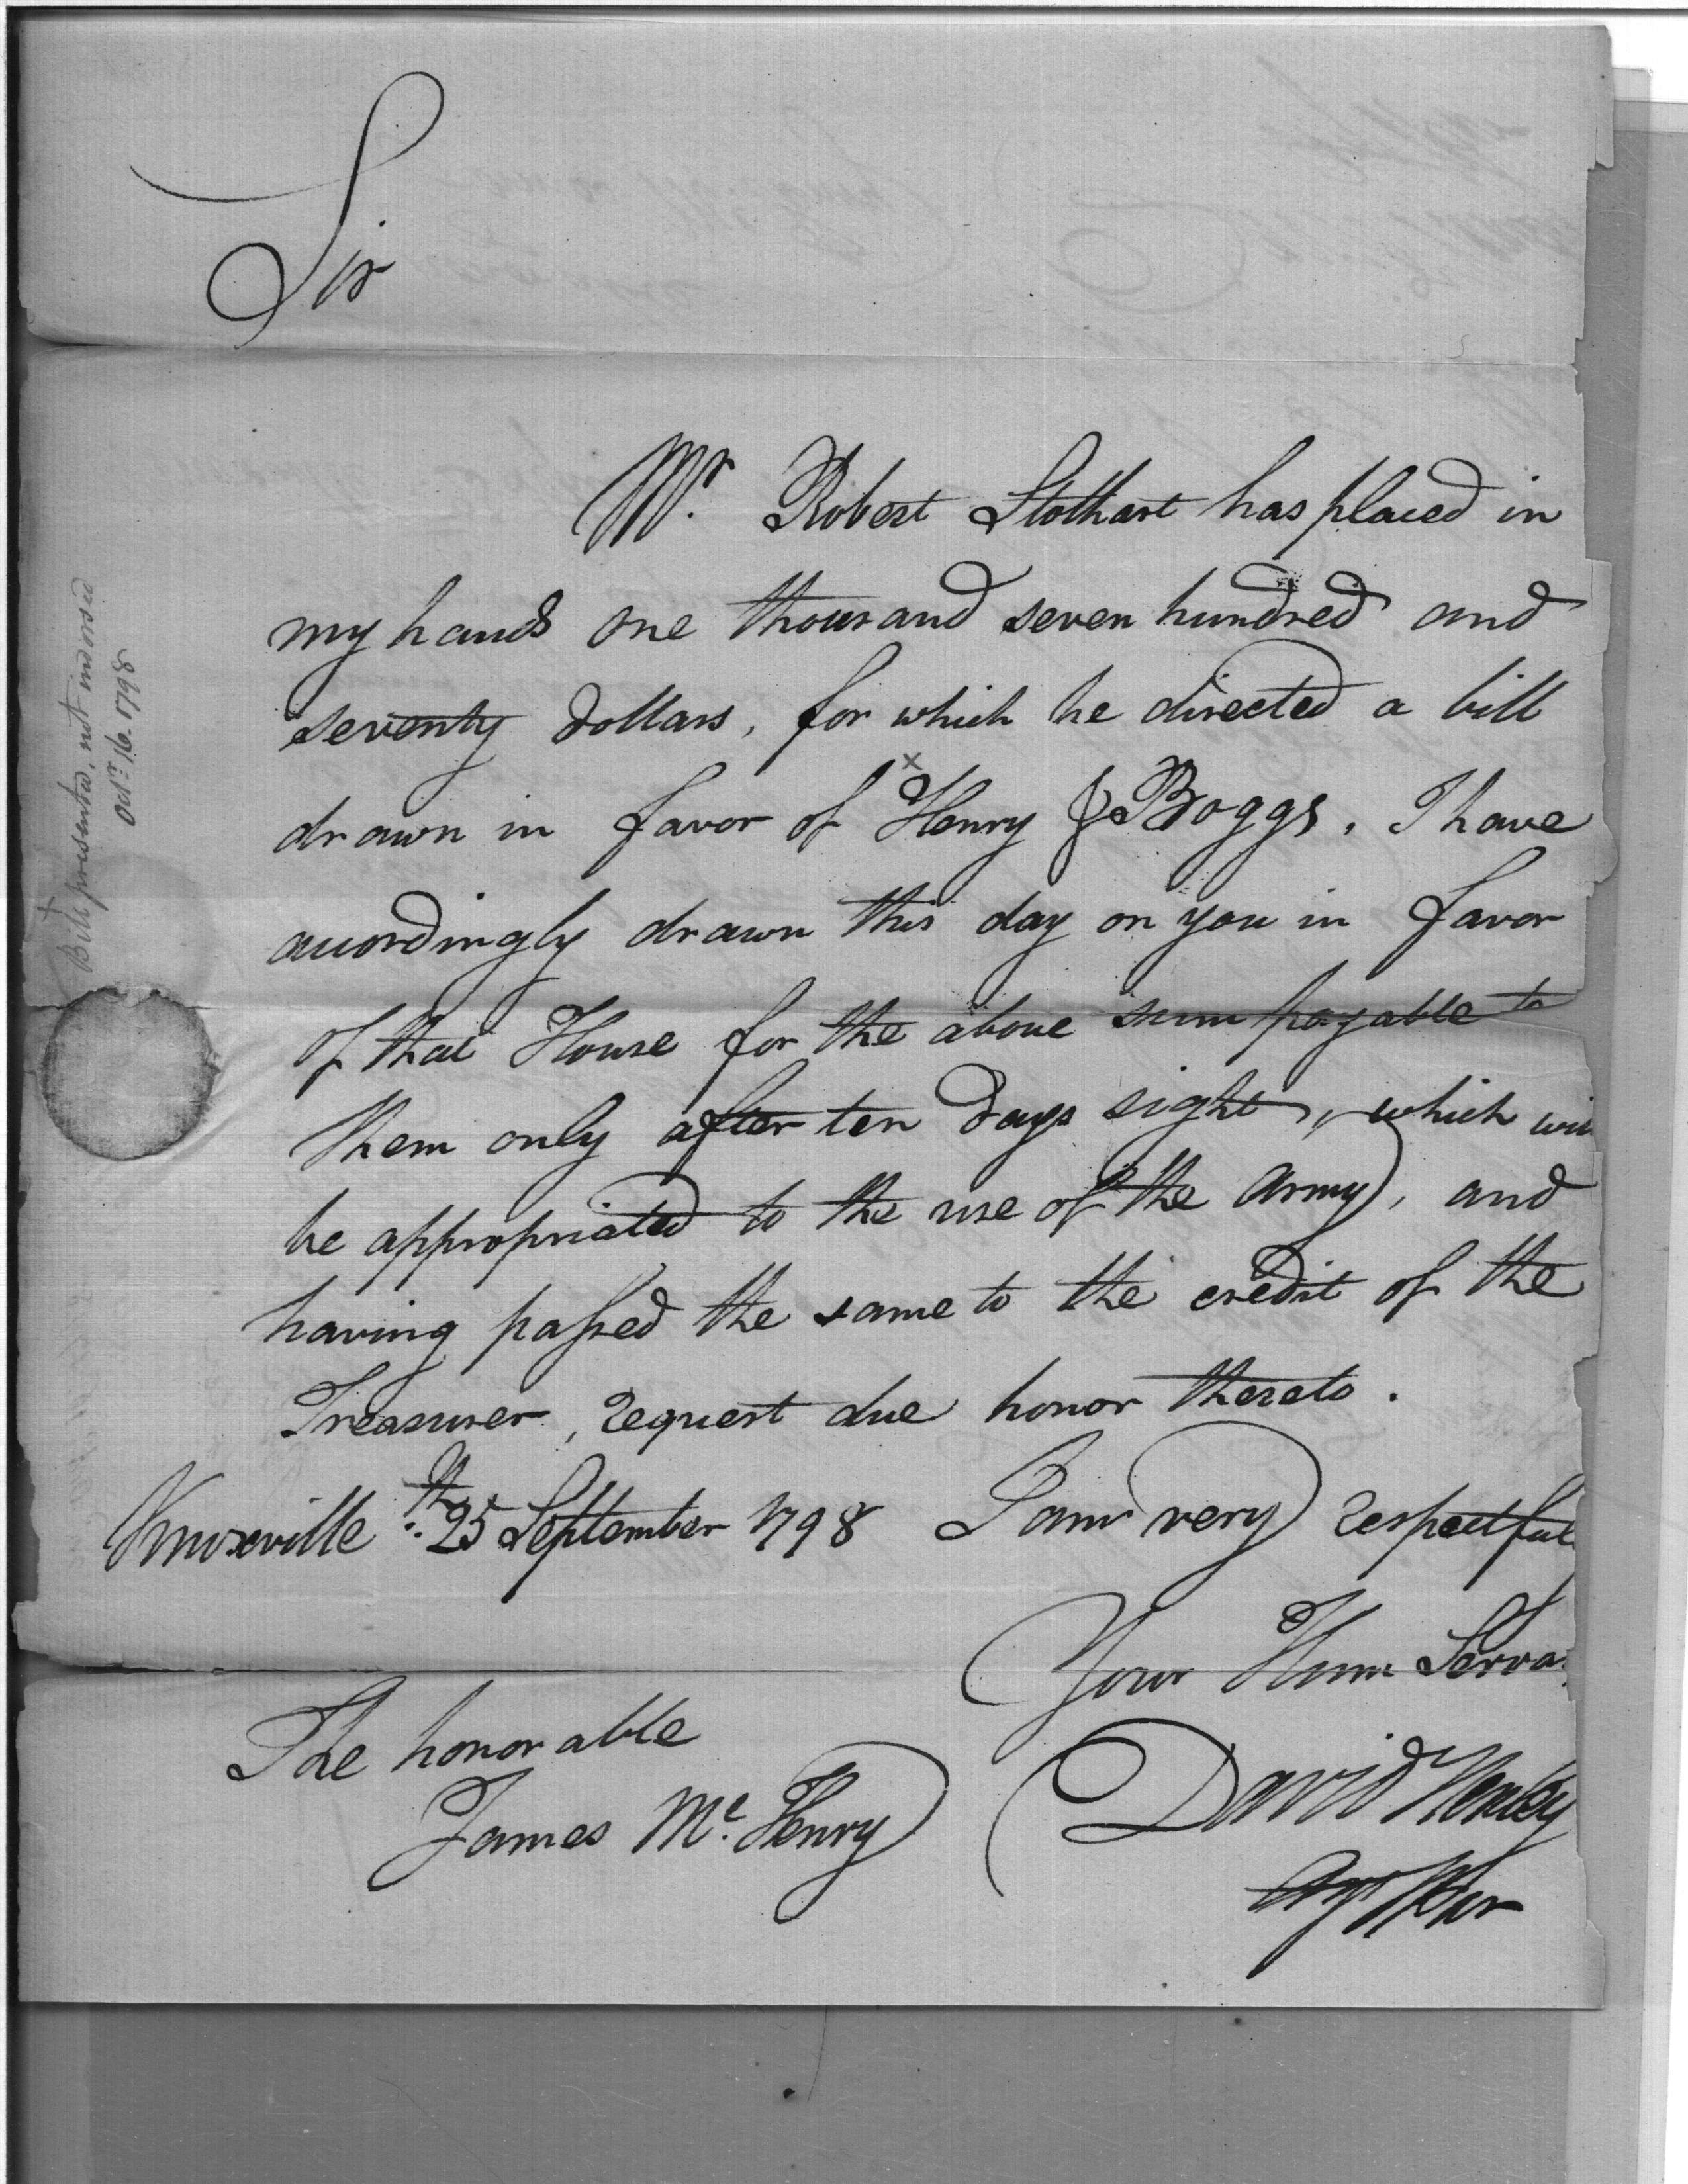 Sir
Mr. Robert Stothart has placed in
my hands one thousand seven hundred and
seventy dollars, for which he directed a bill
drawn in favor of Henry & Boggs. I have
accordingly drawn this day on you in favor
of that House for the above sum payable to
them only after ten days sight, which
be appropriated to the use of the army, and
having passed the same to the credit of the
Treasurer, request due honor thereto.
Knoxville 25th September 1798 I am very respectful
Your Hum Serva
David Henley
Agt
The honorable
James Mc. Henry
Bill presented, not indorsed
Octr: 16. 1798